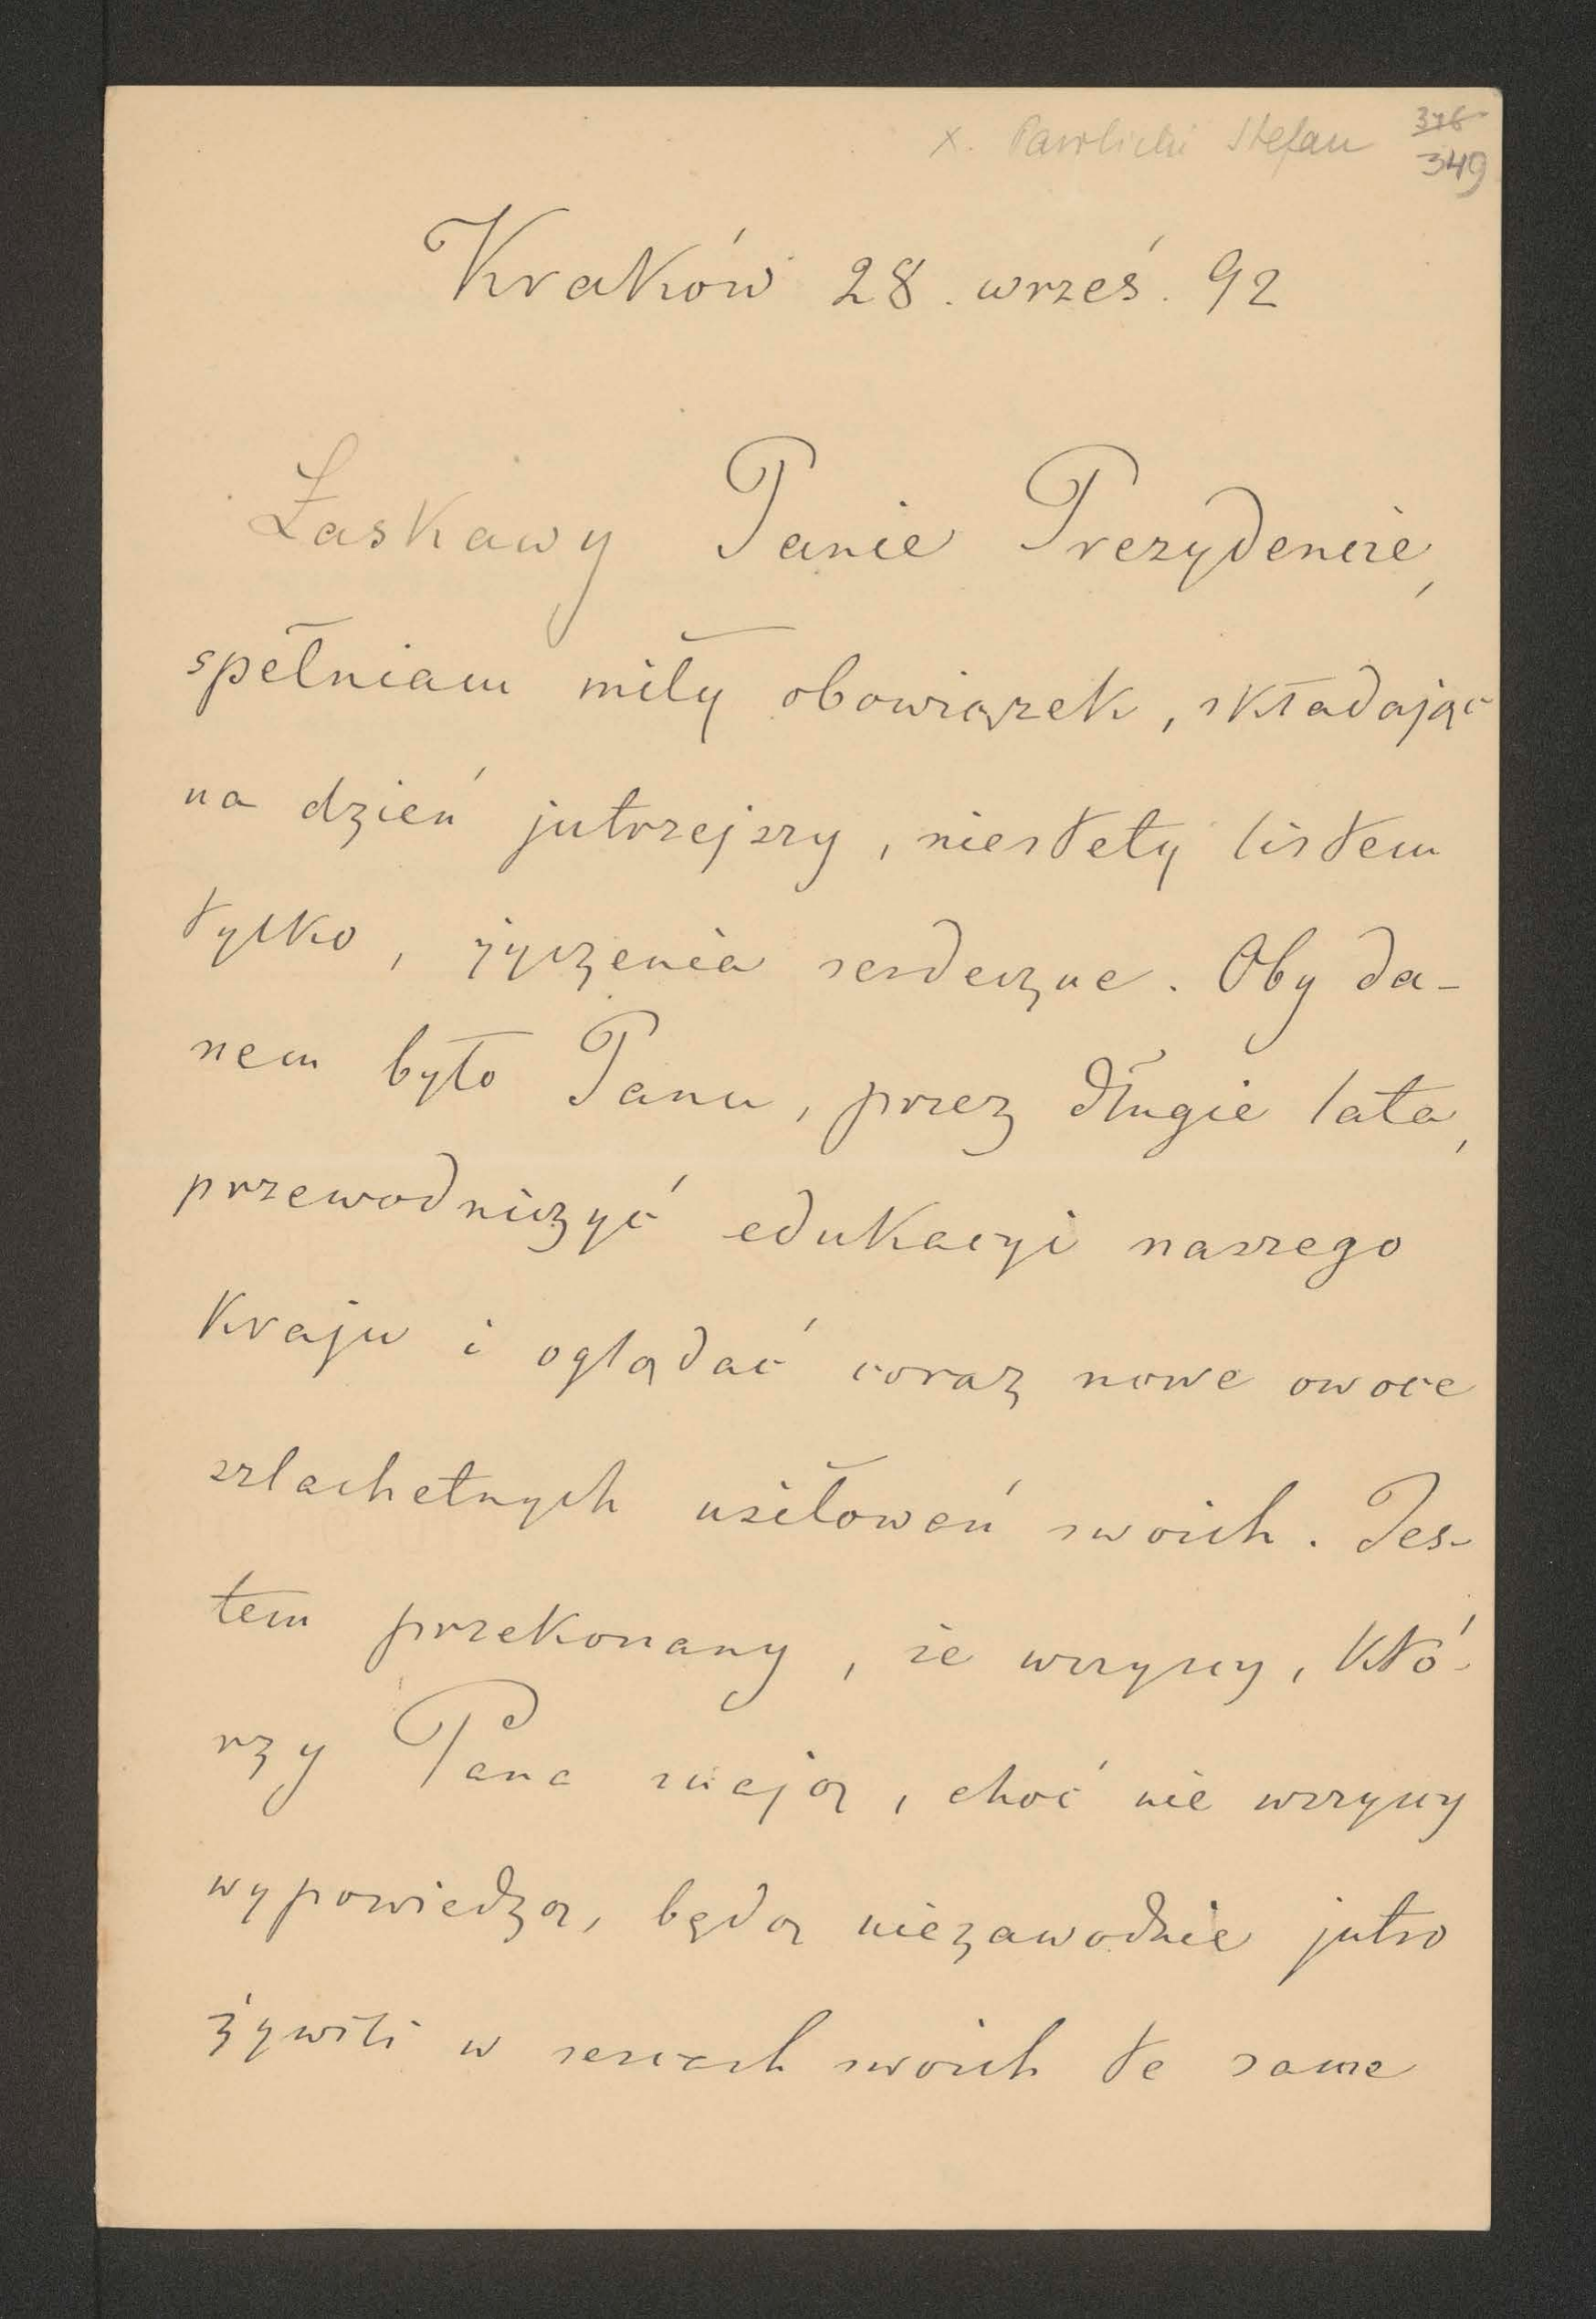 x. Pawlicki Stefan
376
349
Kraków 28. wrześ. 92
Łaskawy Panie Prezydencie,
spełniam miły obowiązek, składając
na dzień jutrzejszy, niestety listem
tylko, życzenia serdeczne. Oby da-
nem było Panu, przez długie lata,
przewodniczyć edukacyi naszego
kraju i oglądać coraz nowe owoce
szlachetnych usiłowań swoich. Jes-
tem przekonany, że wszyscy, któ-
rzy Pana znają, choć nie wszyscy
wypowiedzą, będą niezawodnie jutro
żywili w sercach swoich te same